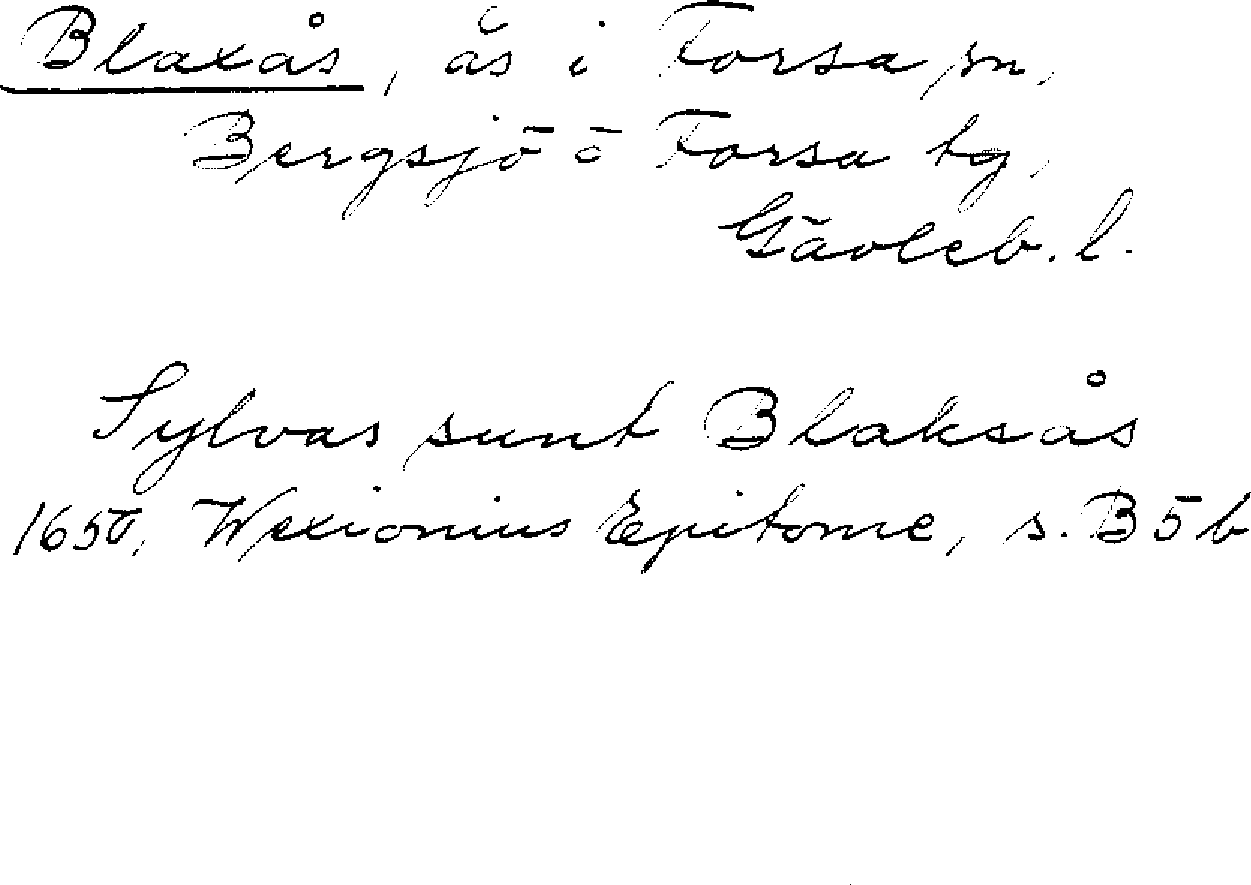 Blaxås, ås i Forsa sn,
Bergsjö o Forsa tg,
Gävleb. l.
Sylvas sunt Blaksås
1650, Wexionius Epitome, s. B 5 b